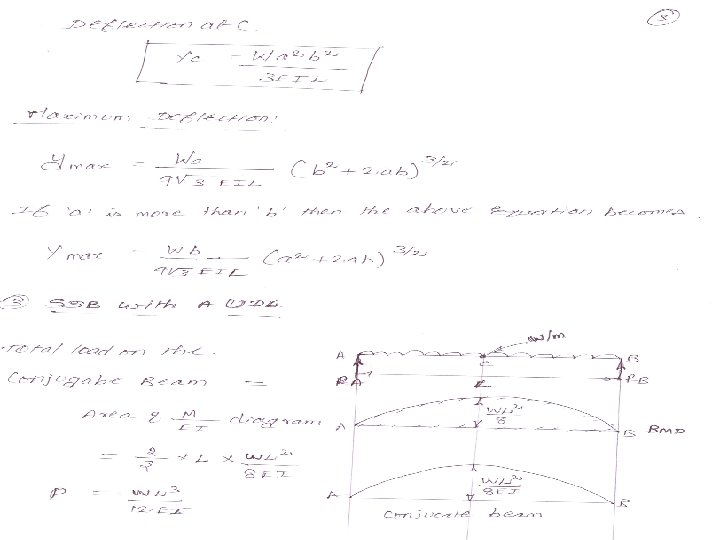 5
Deflection at C.
yc = Wa²b² / 3EIL
Maximum Deflection:
Ymax = Wa / 9√3 EIL (b² + 2ab)^3/2
If 'a' is more than 'b' then the above Equation becomes.
Ymax = Wb / 9√3 EIL (a² + 2ab)^3/2
③ SSB with A UDL
Total load on the
Conjugate Beam =
Area of M/EI diagram
= 2/3 × L × WL²/8EI
P = WL³/12EI
w/m
A C B
RA L RB
A WL²/8 B BMD
A WL²/8EI B
Conjucate beam